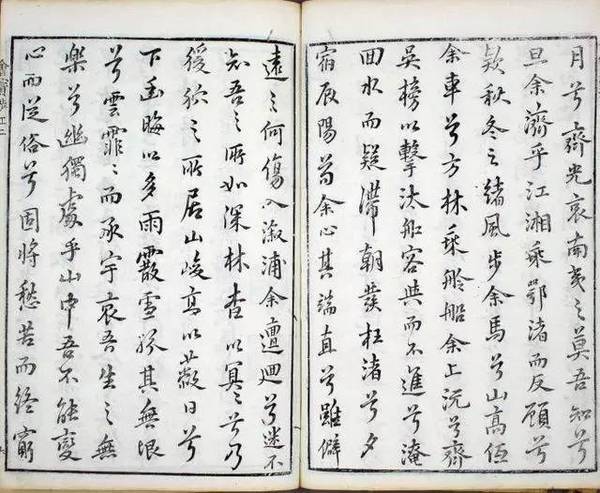 月兮齊光哀南夷之莫吾知兮
旦余濟乎江湘乘鄂渚而反顧兮
欸秋冬之緒風步余馬兮山高低
余車兮方林乘舲船余上沅兮齊
吳榜以擊汰船容與而不進兮淹
回水而疑滯朝發枉渚兮夕
宿辰陽苟余心其端直兮雖僻
遠之何傷入漵浦余邅迴兮迷不
知吾之所如深林杳以冥〻兮乃
猨狖之所居山峻高以蔽日兮
下幽晦以多雨霰雪紛其無垠
兮雲霏〻而承宇哀吾生之無
樂兮幽獨處乎山中吾不能變
心而從俗兮固將愁苦而終窮